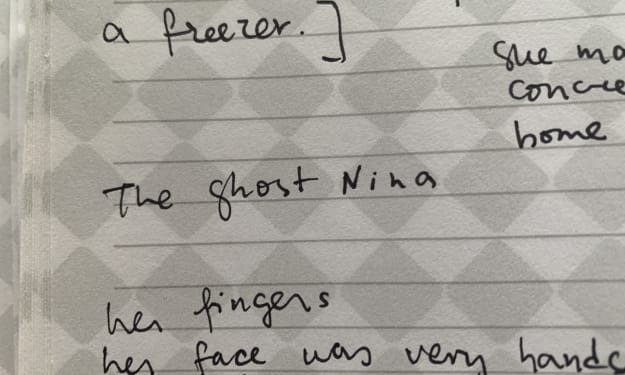 a freezer.]
The ghost Nina
her fingers
her face was very
She
home